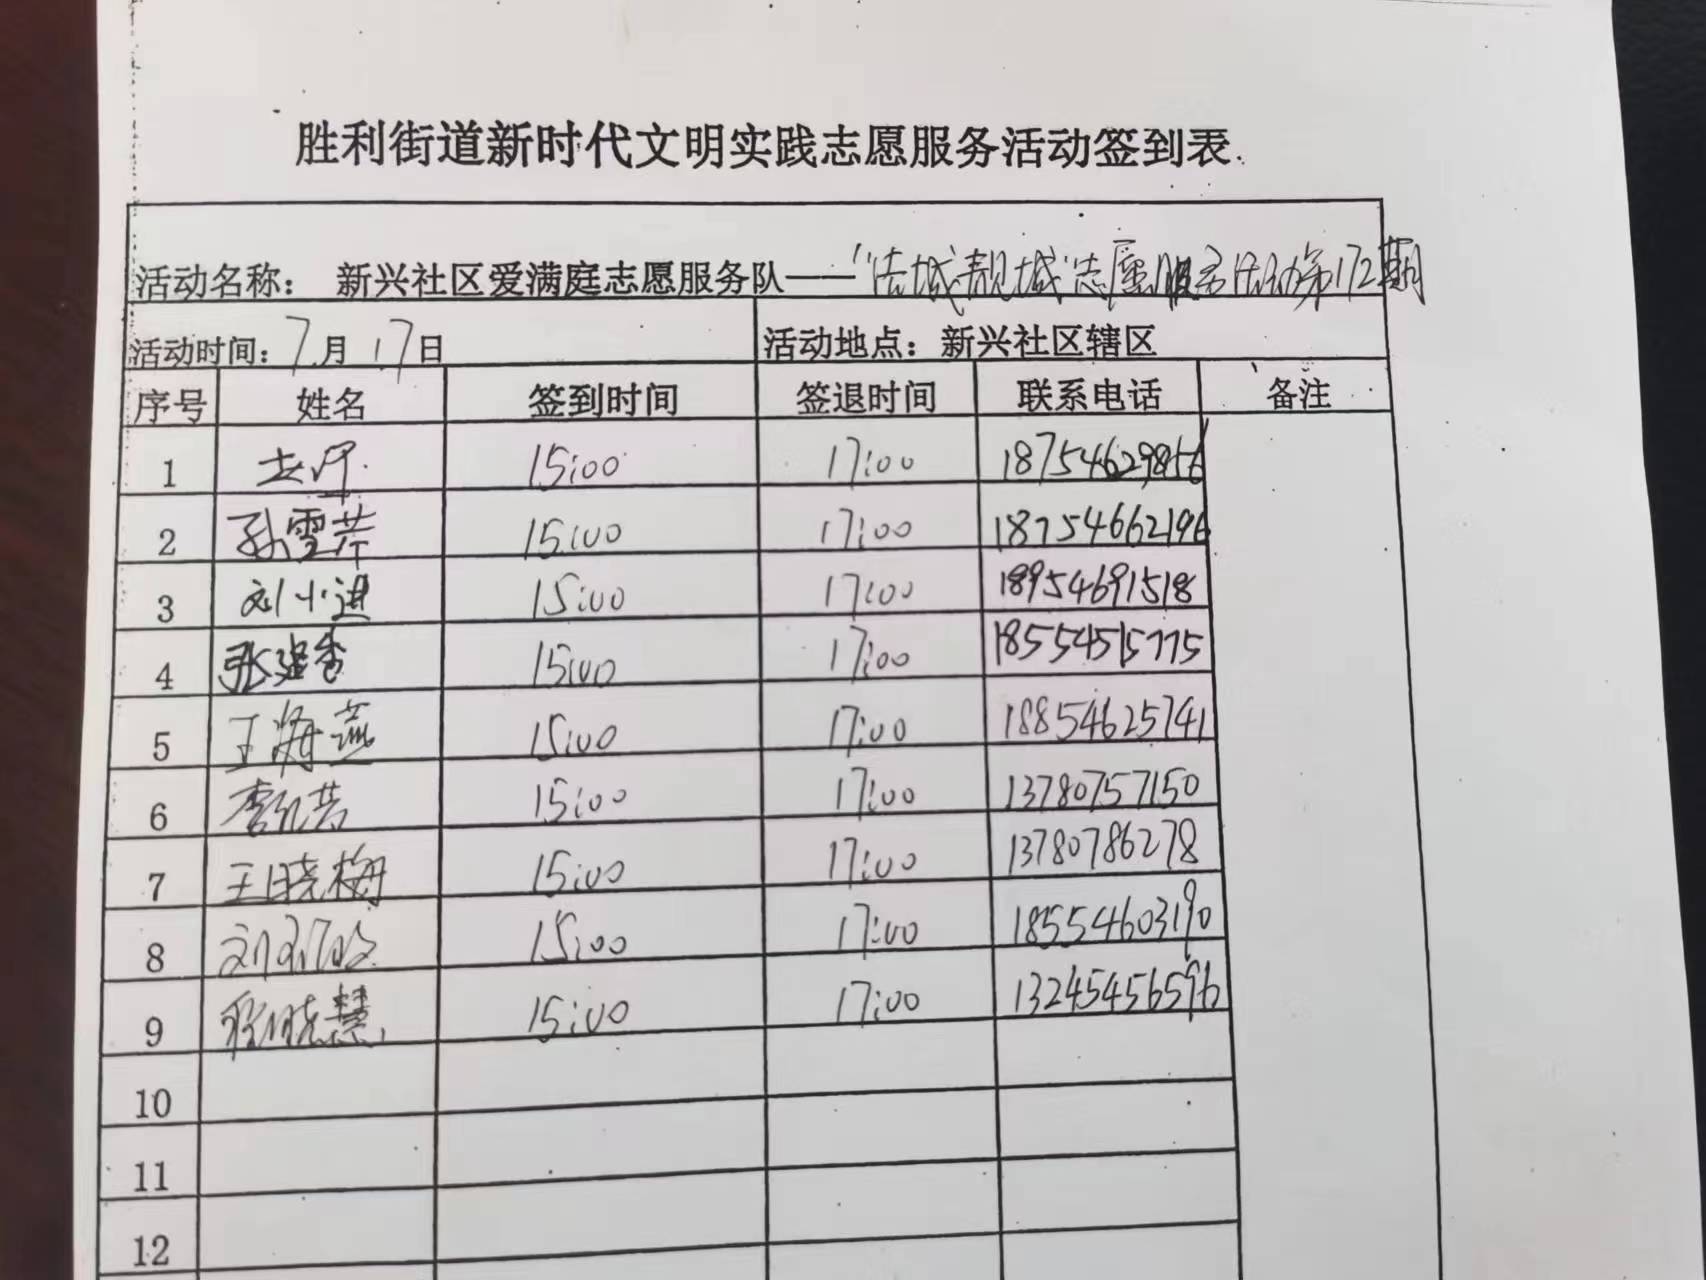 胜利街道新时代文明实践志愿服务活动签到表
活动名称： 新兴社区爱满庭志愿服务队——“洁城靓城”志愿服务活动第172期
活动时间：7月17日 活动地点：新兴社区辖区
序号 姓名 签到时间 签退时间 联系电话 备注
1 15:00 17:00 18754629856
2 孙雪芹 15:00 17:00 18754662196
3 刘小进 15:00 17:00 18954691518
4 15:00 17:00 18554515775
5 王海燕 15:00 17:00 18854625741
6 15:00 17:00 13780757150
7 王晓梅 15:00 17:00 13780786278
8 15:00 17:00 18554603190
9 程晓慧 15:00 17:00 13245456596
10
11
12